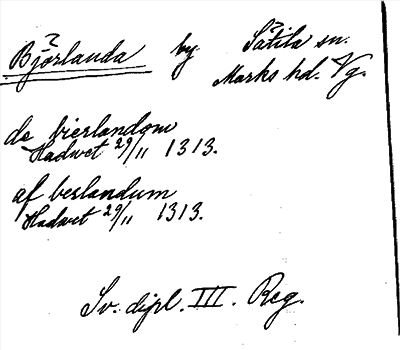 ? ?
Björlanda by Sätila sn.
Marks hd. Vg.
de bierlandom
Hadwet 29/11 1313.
af berlandum
Hadwet 29/11 1313.
Sv. dipl. III. Reg.